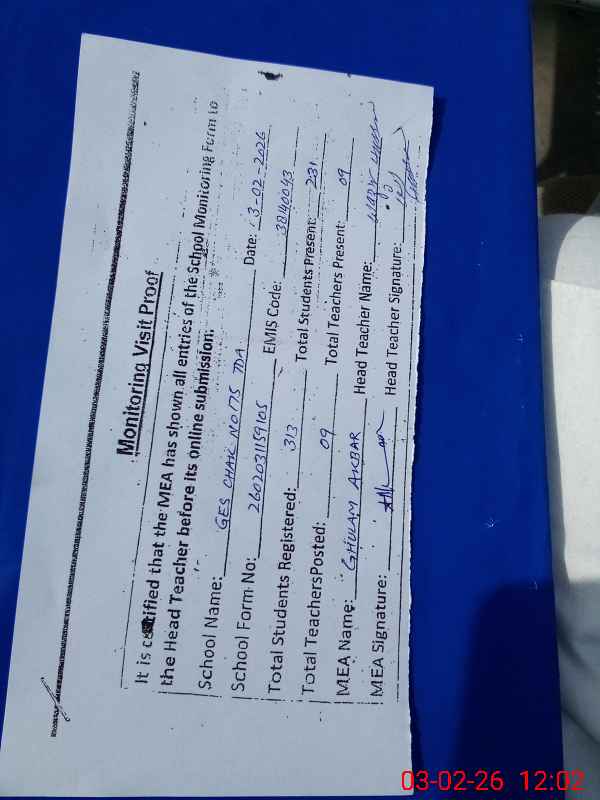 Monitoring Visit Proof
It is certified that the MEA has shown all entries of the School Monitoring Form to
the Head Teacher before its online submission.
School Name: GES CHAK NO 175 TDA Date: 3-02-2026
School Form No: 2602031159105 EMIS Code: 38140043
Total Students Registered: 313 Total Students Present: 231
Total Teachers Posted: 09 Total Teachers Present: 09
MEA Name: GHULAM AKBAR Head Teacher Name:
MEA Signature: Head Teacher Signature:
03-02-26 12:02